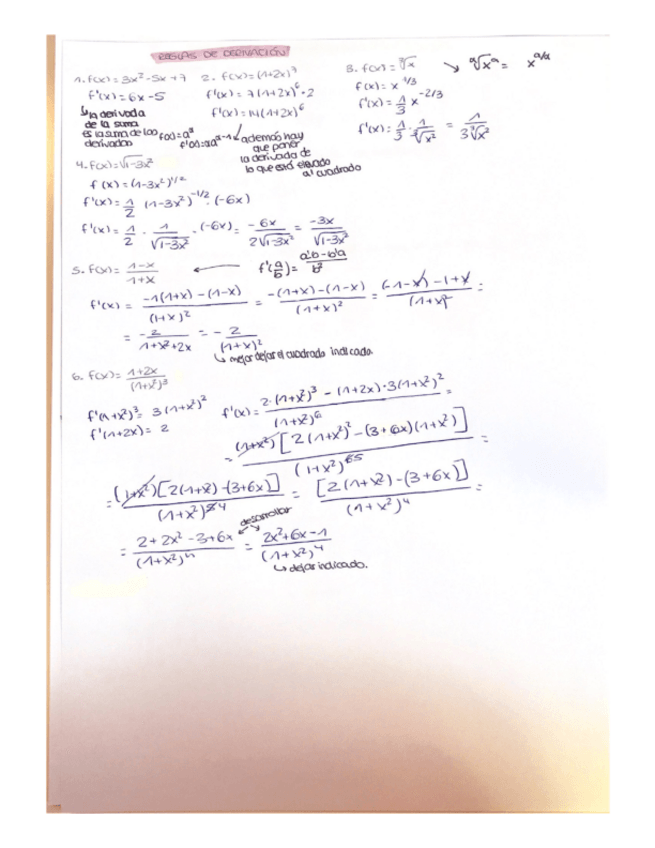 REGLAS DE DERIVACIÓN
1. f(x) = 3x²-5x+7
f'(x) = 6x-5
↳ la derivada
de la suma
es la suma de las
derivadas
2. f(x) = (1+2x)⁷
f'(x) = 7(1+2x)⁶·2
f'(x) = 14(1+2x)⁶
↙ además hay
que poner
la derivada de
lo que está elevado
al cuadrado
3. f(x) = ∛x ↘ ᵃ√xᵃ = x^(a/a)
f(x) = x^(1/3)
f'(x) = 1/3 x^(-2/3)
f'(x) = 1/3 · 1/∛x² = 1/(3∛x²)
4. f(x) = √(1-3x²)
f(x) = (1-3x²)^(1/2)
f'(x) = 1/2 (1-3x²)^(-1/2) · (-6x)
f'(x) = 1/2 · 1/√(1-3x²) · (-6x) = -6x/(2√(1-3x²)) = -3x/√(1-3x²)
5. f(x) = (1-x)/(1+x) ← f'(a/b) = (a'b-b'a)/b²
f'(x) = (-1(1+x)-(1-x))/(1+x)² = (-(1+x)-(1-x))/(1+x)² = ((-1-x)-1+x)/(1+x)² =
= -2/(1+x²+2x) = -2/(1+x)²
↳ mejor dejar el cuadrado indicado.
6. f(x) = (1+2x)/(1+x²)³
f'(1+x²)³ = 3(1+x²)²
f'(1+2x) = 2
f'(x) = (2·(1+x²)³ - (1+2x)·3(1+x²)²)/(1+x²)⁶ =
= (1+x²)[2(1+x²)²-(3+6x)(1+x²)]/(1+x²)⁶⁵ =
= (1+x²)[2(1+x²)-(3+6x)]/(1+x²)⁵⁴ = [2(1+x²)-(3+6x)]/(1+x²)⁴ =
desarrollar
= (2+2x²-3+6x)/(1+x²)⁴ = (2x²+6x-1)/(1+x²)⁴
↳ dejar indicado.